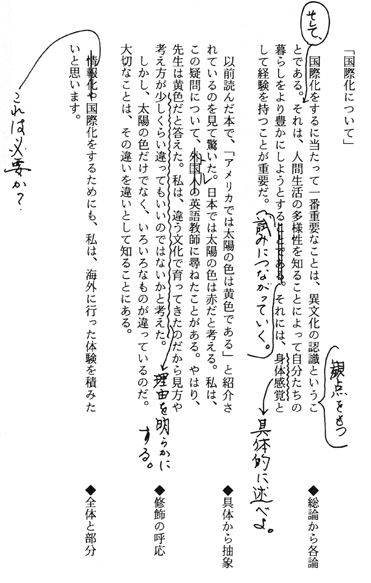 「国際化について」
そして、
国際化をするに当たって一番重要なことは、異文化の認識というこ
観点をもつ
とである。それは、人間生活の多様性を知ることによって自分たちの
暮らしをより豊かにしようとすることである。それには、身体感覚と
試みにつながっていく。
して経験を持つことが重要だ。
具体的に述べよ。
以前読んだ本で、「アメリカでは太陽の色は黄色である」と紹介さ
れているのを見て驚いた。日本では太陽の色は赤だと考える。私は、
この疑問について、外国人の英語教師に尋ねたことがある。やはり、
先生は黄色だと答えた。私は、違う文化で育ってきたのだから見方や
考え方が少しくらい違ってもいいのではないかと考えた。
理由を明らかに
する。
しかし、太陽の色だけでなく、いろいろなものが違っているのだ。
大切なことは、その違いを違いとして知ることにある。
情報化や国際化をするためにも、私は、海外に行った体験を積みた
いと思います。
これは必要か？
◆総論から各論
◆具体から抽象
◆修飾の呼応
◆全体と部分